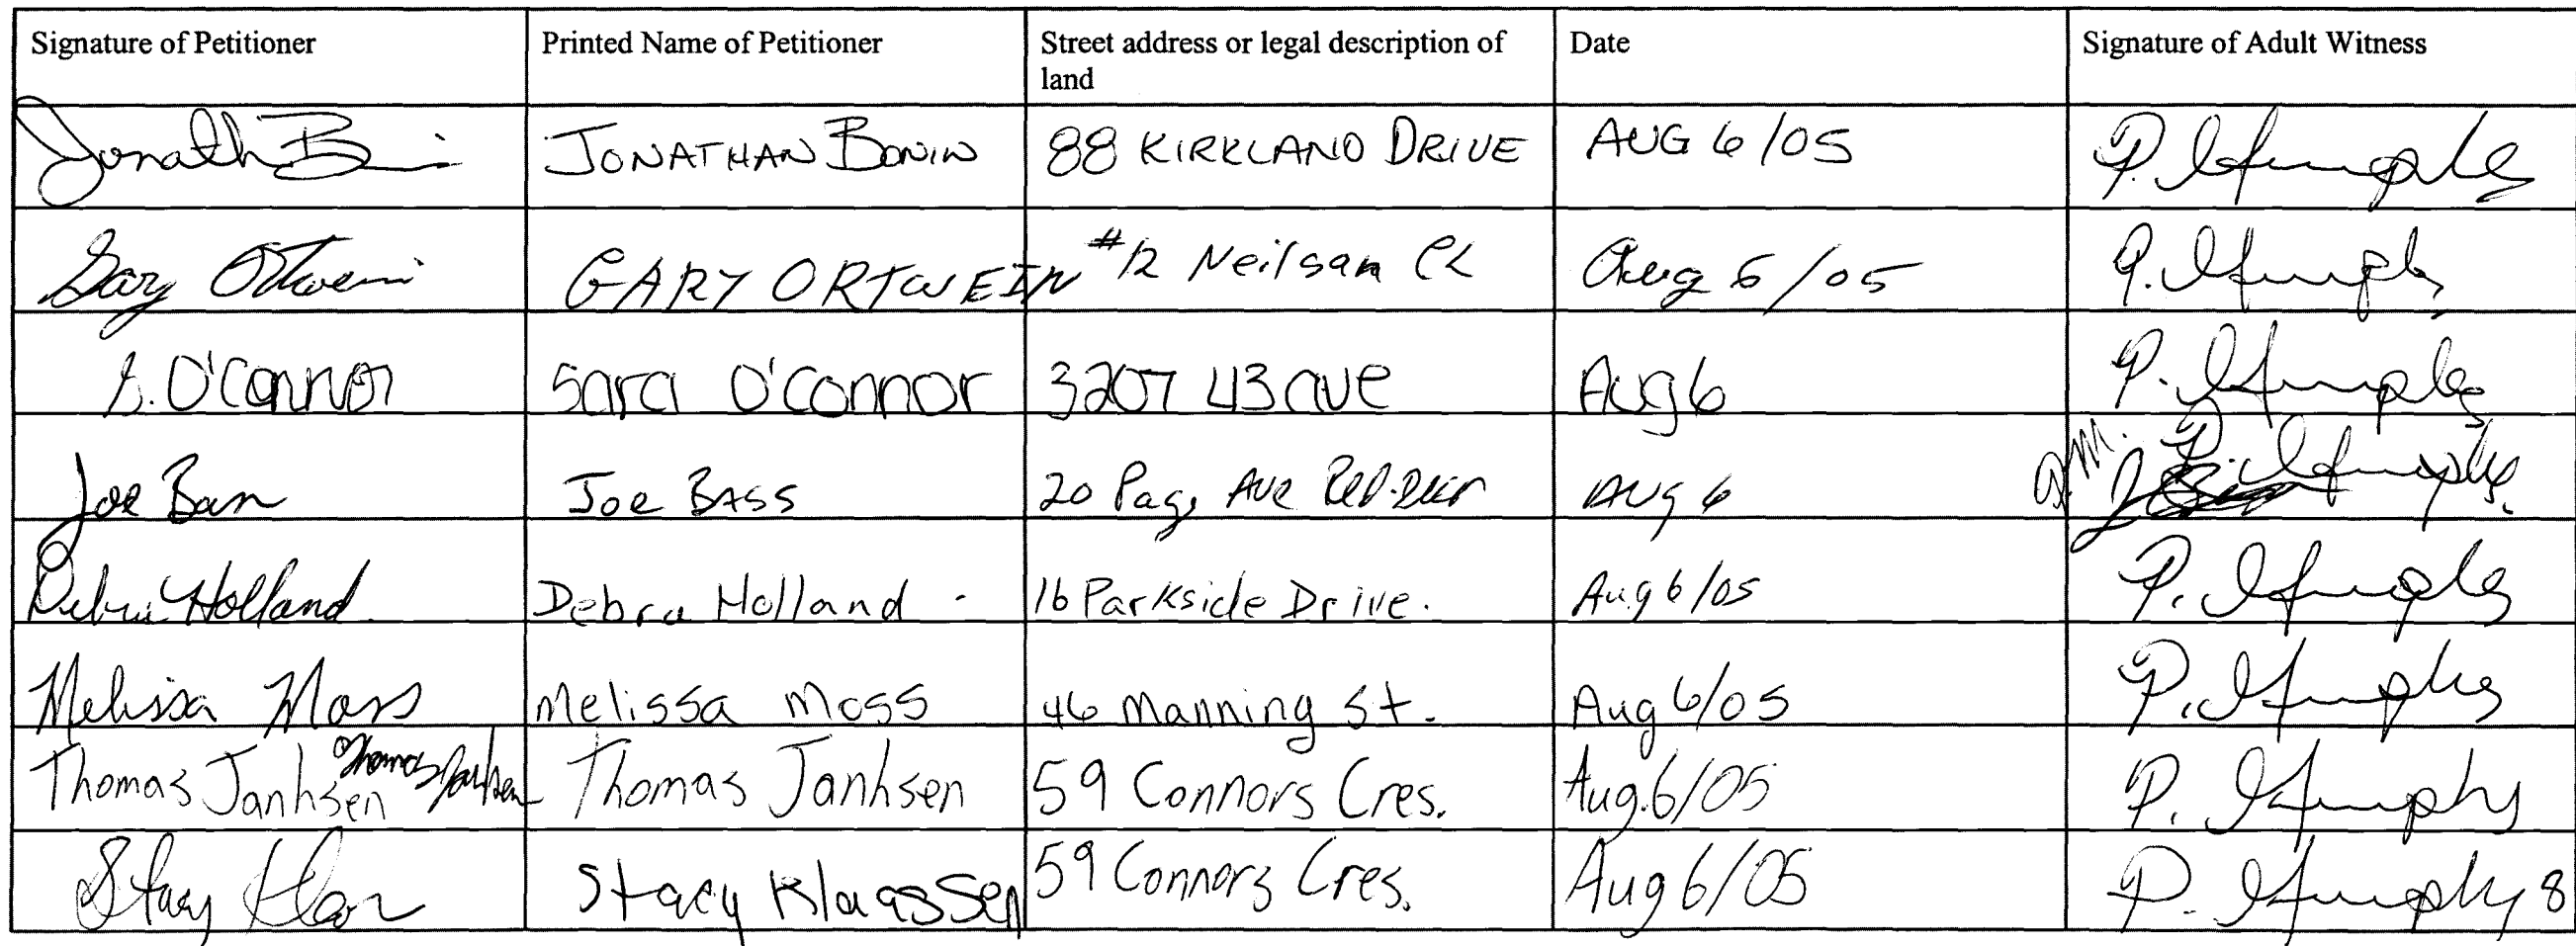 Signature of Petitioner Printed Name of Petitioner Street address or legal description of land Date Signature of Adult Witness
JONATHAN BONIN 88 KIRKLAND DRIVE AUG 6/05
Gary Ortwein GARY ORTWEIN #12 Neilsan Aug 6/05
S. O'Connor Sara O'Connor 3207 43 ave Aug 6
Joe Bass Joe BASS 20 Page Ave RED DEER AUG 6
Debra Holland Debra Holland 16 Parkside Drive. Aug 6/05
Melissa Moss Melissa Moss 46 Manning St. Aug 6/05
Thomas Janhsen Thomas Janhsen Thomas Janhsen 59 Connors Cres. Aug. 6/05
Stacy Stacy Klaassen 59 Connors Cres. Aug 6/05 8